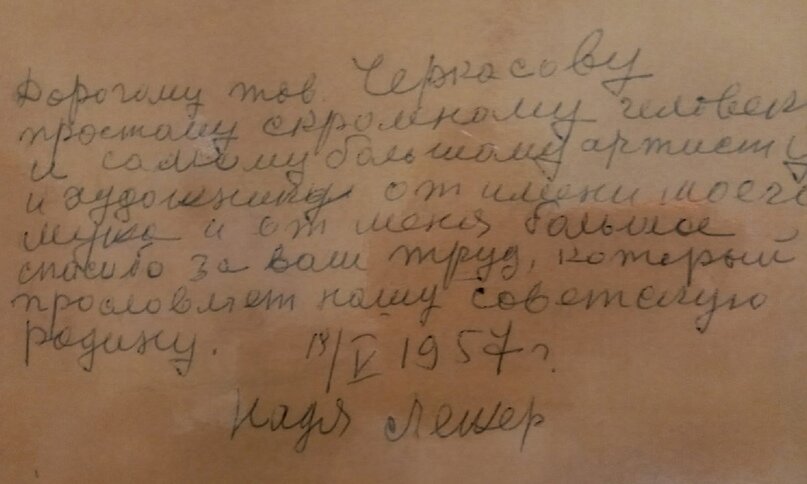 Дорогому тов. Черкасову
простому скромному человек
и самому большому артисту
и художнику от имени моего
мужа и от меня большое
спасибо за ваш труд, который
прославляет нашу советскую
родину. /V 1957 г.
Надя